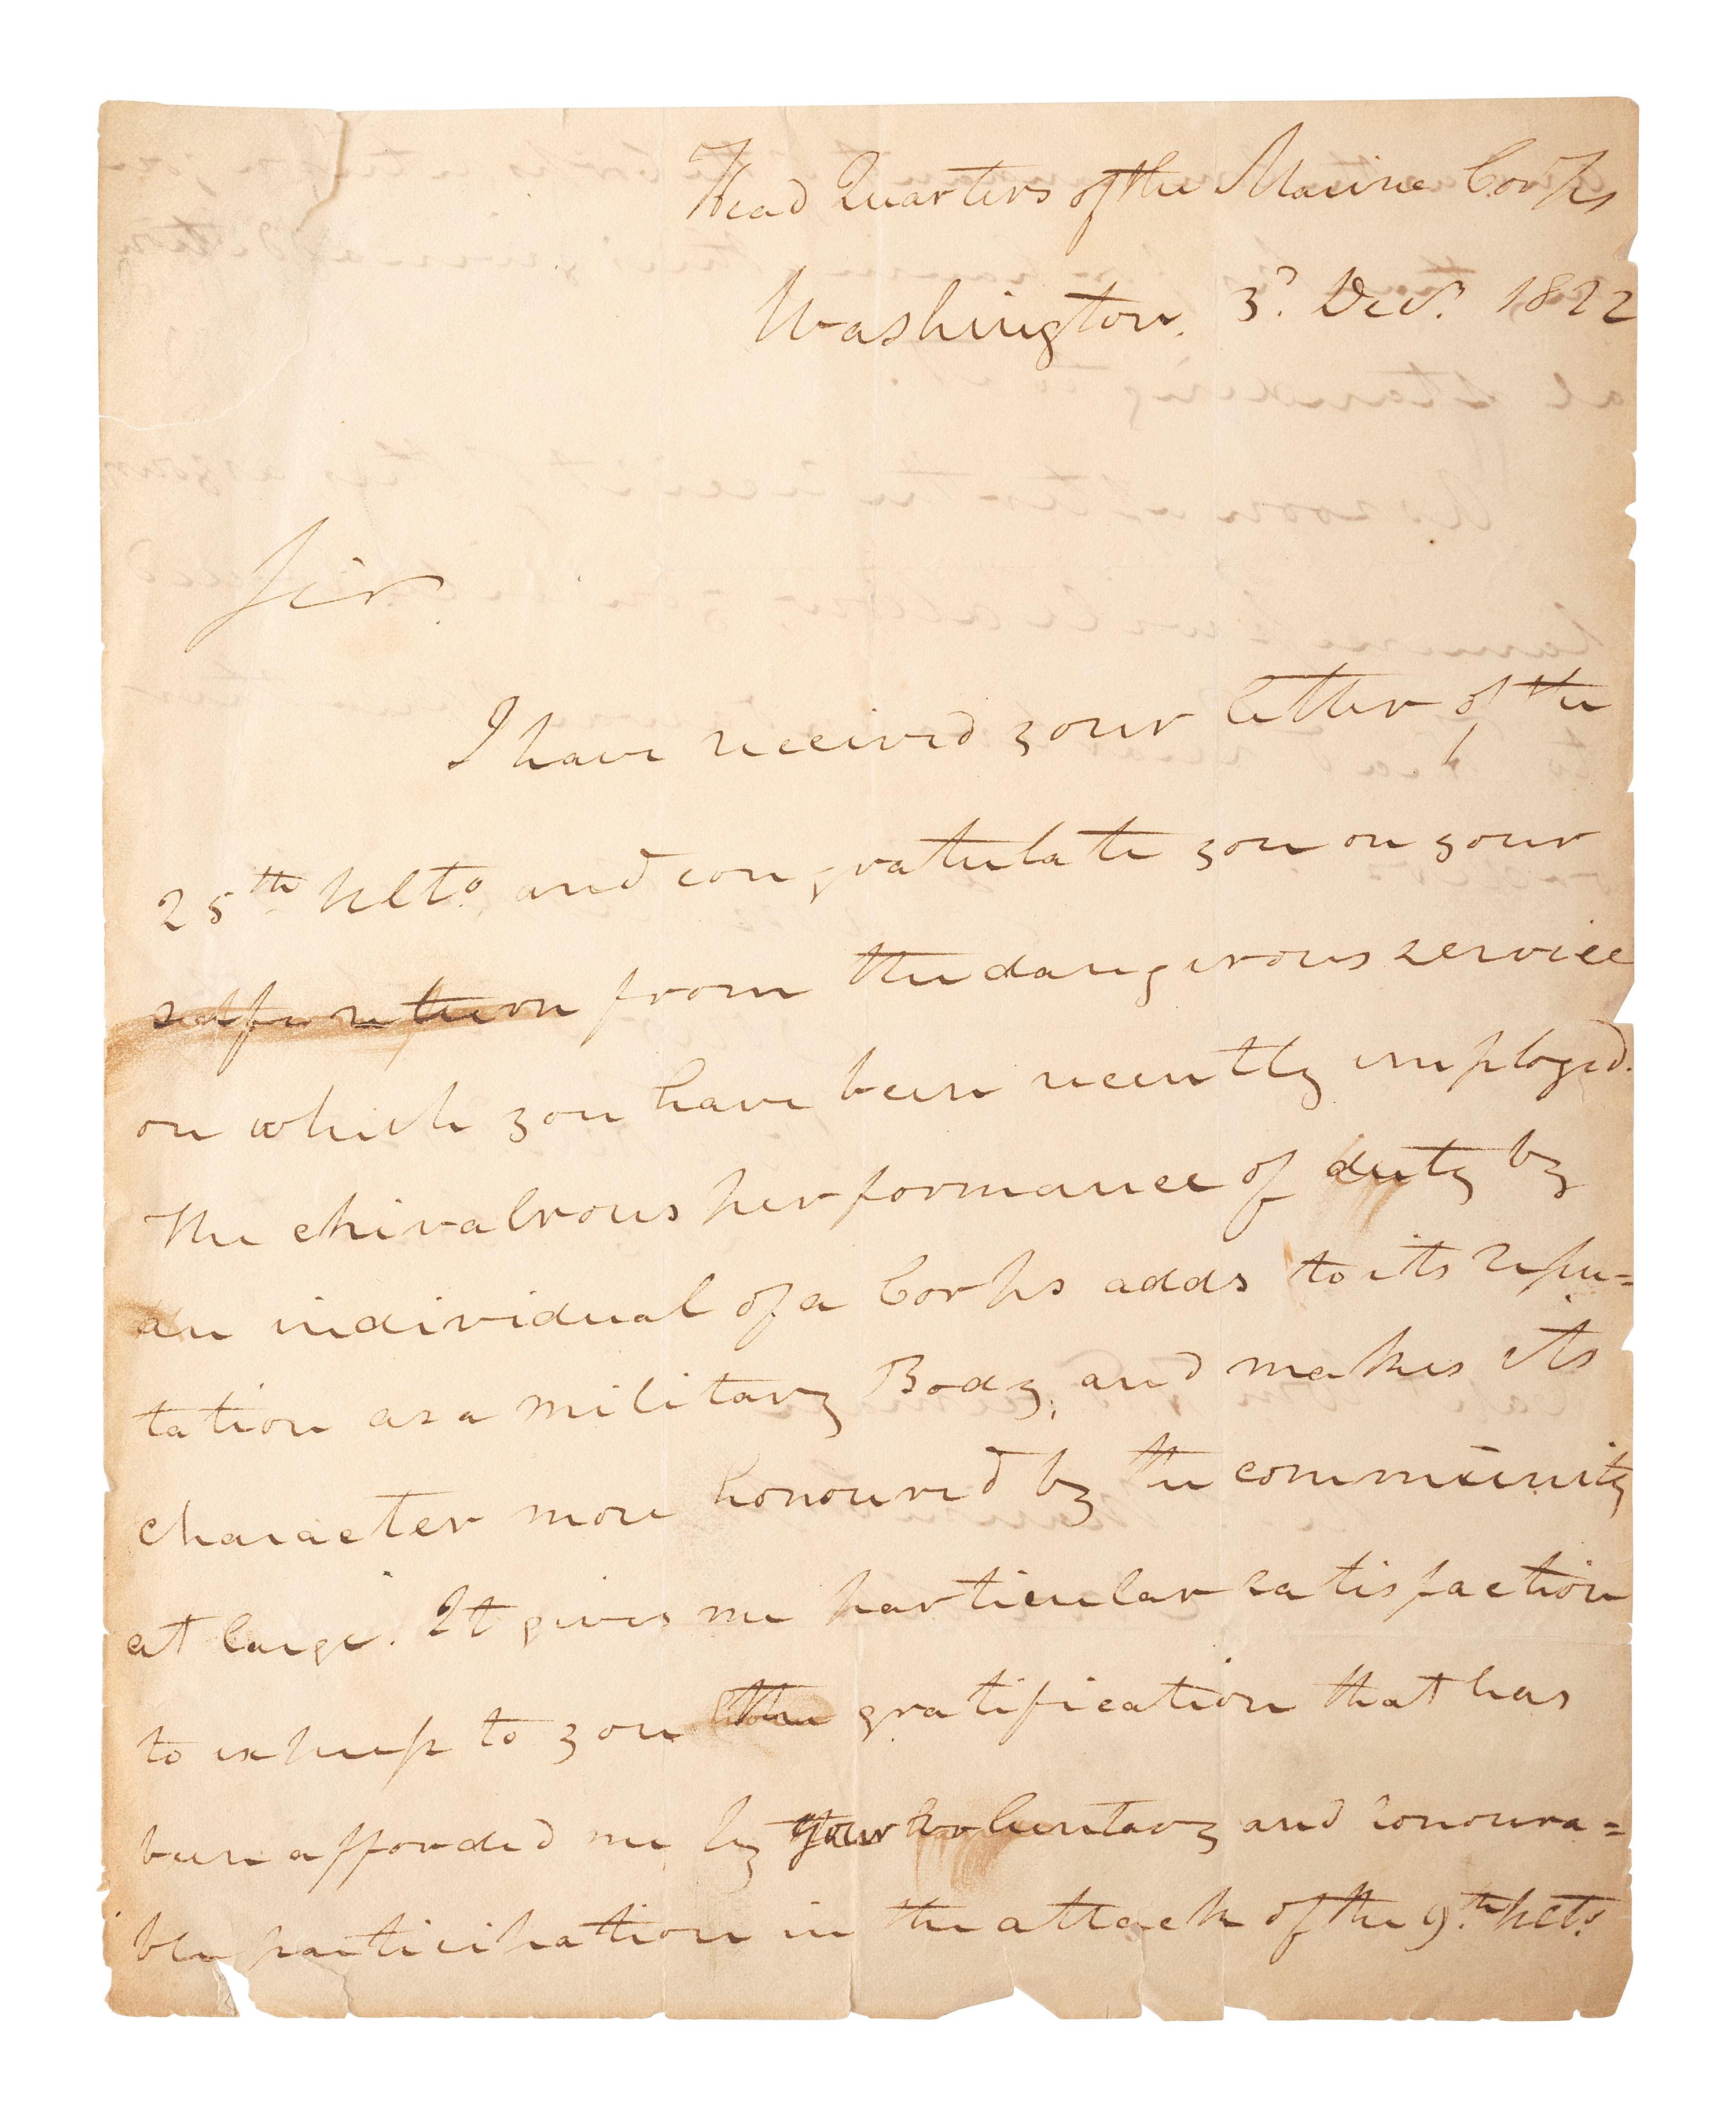 Head Quarters of the Marine Corps
Washington. 3d. Decr. 1822
Sir.
I have received your letter of the
25th. Ulto. and congratulate you on your
safe return from the dangerous service
on which you have been recently employed.
The chivalrous performance of duty by
an individual of a Corps adds to its repu=
tation as a military Body, and makes its
character more honoured by the community
at large. It gives me particular satisfaction
to express to you the gratification that has
been afforded me by your voluntary and honoura=
ble participation in the attack of the 9th. Ulto.